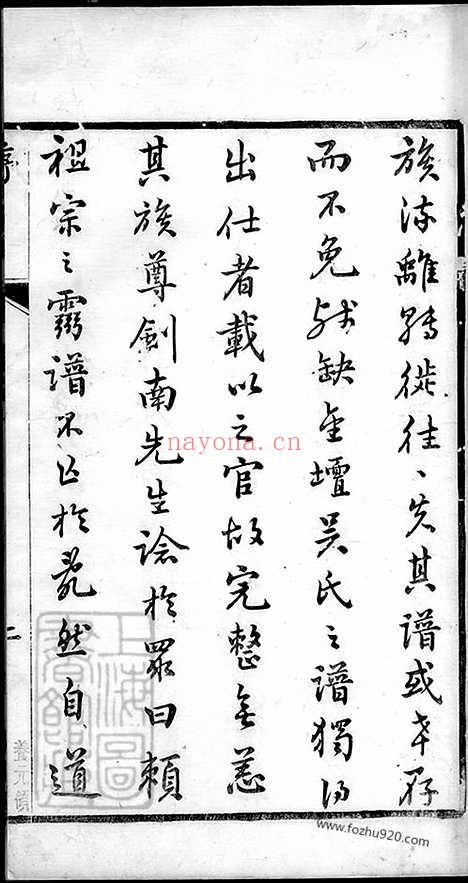 族流離轉徙往〻失其譜或幸存
而不免殘缺金壇吳氏之譜獨得
出仕者載以之官故完整無恙
其族尊劍南先生諗於眾曰賴
祖宗之靈譜不亡於亂然自道
序
二
上海圖書館藏
nayona.cn
www.fozhu920.com